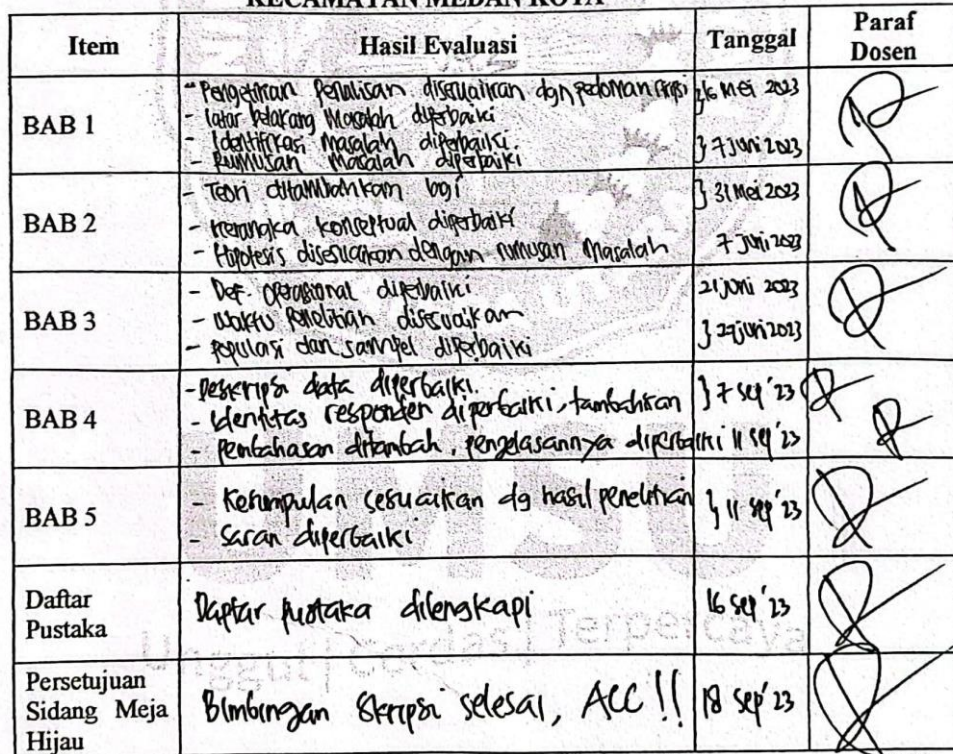 KECAMATAN MEDAN KOTA
Item Hasil Evaluasi Tanggal Paraf Dosen
BAB 1
- Pengetikan Penulisan disesuaikan dgn pedoman skripsi } 16 Mei 2023
- latar belakang Masalah diperbaiki
- Identifikasi Masalah diperbaiki.
- Rumusan Masalah diperbaiki } 7 Juni 2023
BAB 2
- Teori ditambahkan lagi } 31 Mei 2023
- kerangka konseptual diperbaiki
- Hipotesis disesuaikan dengan rumusan Masalah 7 Juni 2023
BAB 3
- Def. operasional diperbaiki 21 Juni 2023
- waktu Penelitian disesuaikan
- populasi dan sampel diperbaiki } 27 Juni 2023
BAB 4
- Deskripsi data diperbaiki. } 7 Sep '23
- Identitas responden diperbaiki, tambahkan
- pembahasan ditambah, penjelasannya diperbaiki 11 Sep '23
BAB 5
- Kesimpulan sesuaikan dg hasil penelitian } 11 Sep '23
- Saran diperbaiki
Daftar Pustaka
Daptar pustaka dilengkapi 16 Sep '23
Persetujuan
Sidang Meja
Hijau
Bimbingan Skripsi selesai, ACC !! 18 Sep '23
UMSU
Unggul | Cerdas | Terpercaya